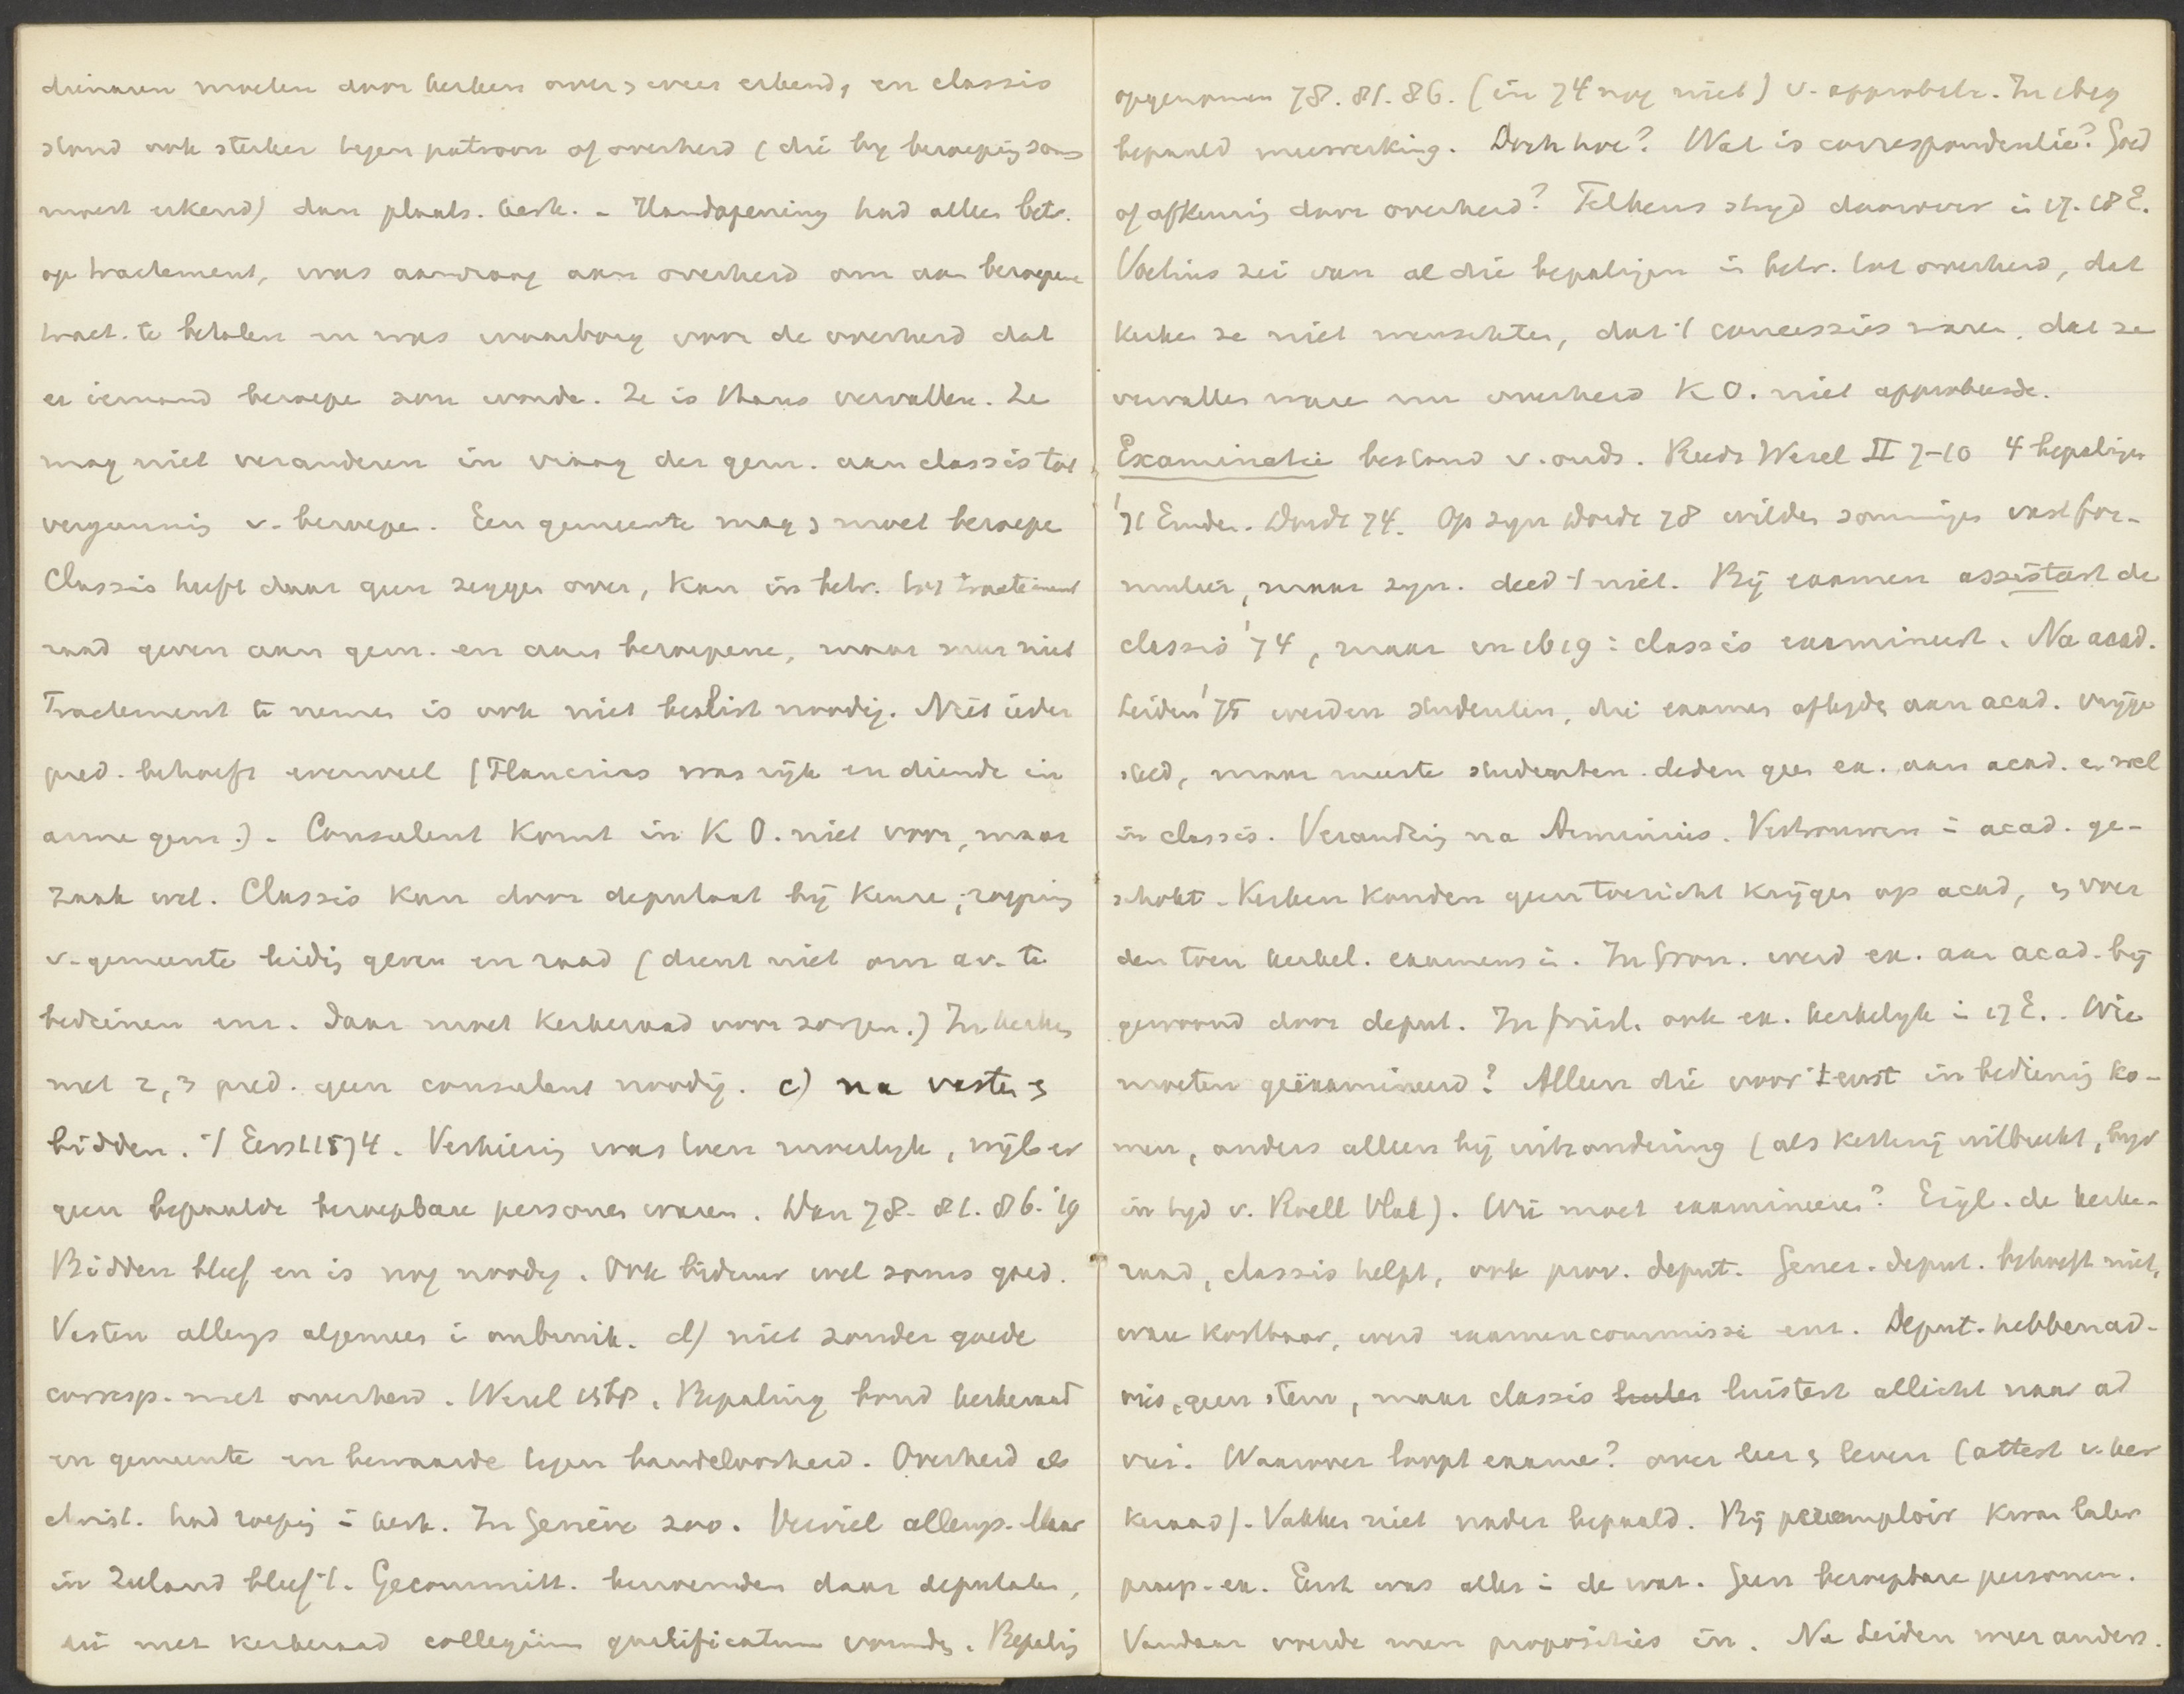 dienaren moeten door kerken over en weer erkend, en classis
stond ook sterker tegen patroon of overheid (die bij beroeping soms
moest erkend) dan plaats. kerk. - Handopening had alleen betr.
op tractement, was aanvraag aan overheid om aan beroepene
tract. te betalen en was waarborg voor de overheid dat
er iemand beroepe zou worde. Ze is thans vervallen. Ze
mag niet veranderen in vraag der gem. aan classis tot
vergunnis v. beroepe. Een gemeente mag en moet beroepe
Classis heeft daar geen zeggen over, kan in betr. tot tractement
raad geven aan gem. en aan beroepene, maar meer niet
Tractement te nemen is ook niet beslist noodig. Niet ieder
pred. behoeft evenveel (Plancius was rijk en diende in
arme gem.). Consulent komt in K O. niet voor, maar
zaak wel. Classis kan door deputaat bij keure, roeping
v. gemeente leidig geven en raad (dient niet om av. te
bedienen enz. Daar moet kerkeraad voor zorgen.) In kerken
met 2, 3 pred. geen consulent noodig. c) na vasten en
bidden. 't Eerst 1574. Verkiezing was toen moeilijk, wijl er
geen bepaalde beroepbare personen waren. Dan 78. 81. 86. '19
Bidden bleef en is nog noodig. Ook biduur wel soms goed.
Vasten allengs algemeen in onbruik. d) niet zonder goede
corresp. met overheid. Wesel 1568. Bepaling bond kerkeraad
en gemeente en bewaarde tegen bandeloosheid. Overheid als
christ. had roeping in kerk. In Genève zoo. Verviel allengs. Maar
in Zeeland bleef 't. Gecommitt. benoemden daar deputaten,
die met kerkeraad collegium qualificatum vormden. Bepaling
opgenomen 78. 81. 86. (in 74 nog niet) v. approbatie. In 1619
bepaald meewerking. Doch hoe? Wat is correspondentie? Goed
of afkeuring door overheid? Telkens strijd daarover in 17. 18 E.
Voetius zei van al die bepalingen in betr. tot overheid, dat
kerken ze niet wenschten, dat 't concessies waren, dat ze
vervallen ware nu overheid K O. niet approbeerde.
Examinatie bestond v. ouds. Reeds Wesel II 7-10 4 bepalingen
'71 Emden. Dordt 74. Op syn Dordt 78 wilden sommigen vast for-
mulier, maar syn. deed 't niet. Bij examen assisteert de
classis '74, maar in 1619: classis examineert. Na acad.
Leiden '75 werden studenten, die examen aflegde aan acad. vrijge
steld, maar meeste studenten deden geen ex. aan acad. en wel
in classis. Verandering na Arminius. Vertrouwen in acad. ge-
schokt. Kerken konden geen toezicht krijgen op acad, en voer
den toen kerkel. examens in. In Gron. werd ex. aan acad. bij
gewoond door deput. In Friesl. ook ex. kerkelijk in 17 E.. Wie
moeten geëxamineerd? Alleen die voor 't eerst in bediening ko-
men, anders alleen bij uitzondering (als ketterij uitbreekt, bijv
in tijd v. Roell Vlak). Wie moet examineren? Eigl. de kerke-
raad, classis helpt, ook prov. deput. Gener. deput. behoeft niet,
ware kostbaar, werd examencommissie enz. Deput. hebben ad-
vies, geen stem, maar classis luistert allicht naar ad
vies. Waarover loopt examen? over leer en leven (attest v. ker
keraad). Vakken niet nader bepaald. Bij peremptoir kwam later
praep. ex. Eerst was alles in de war. Geen beroepbare personen.
Vandaar voerde men proposities in. Na Leiden weer anders.